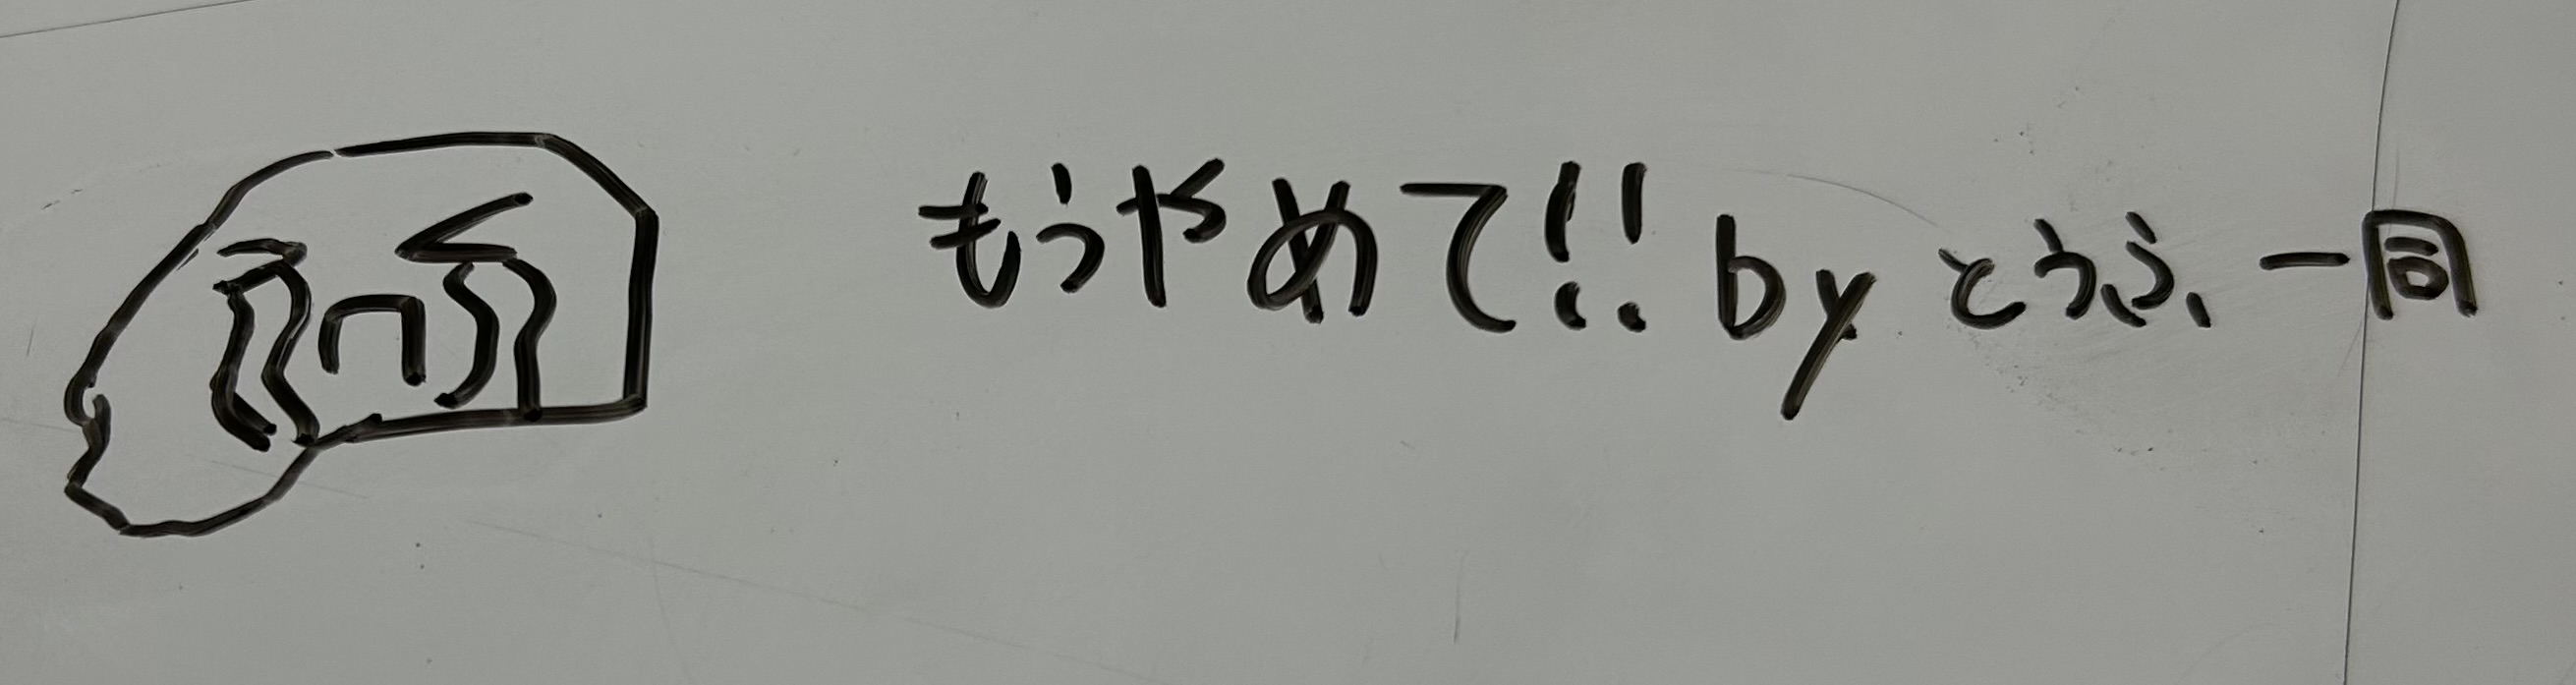 もうやめて!! by とうふ一同